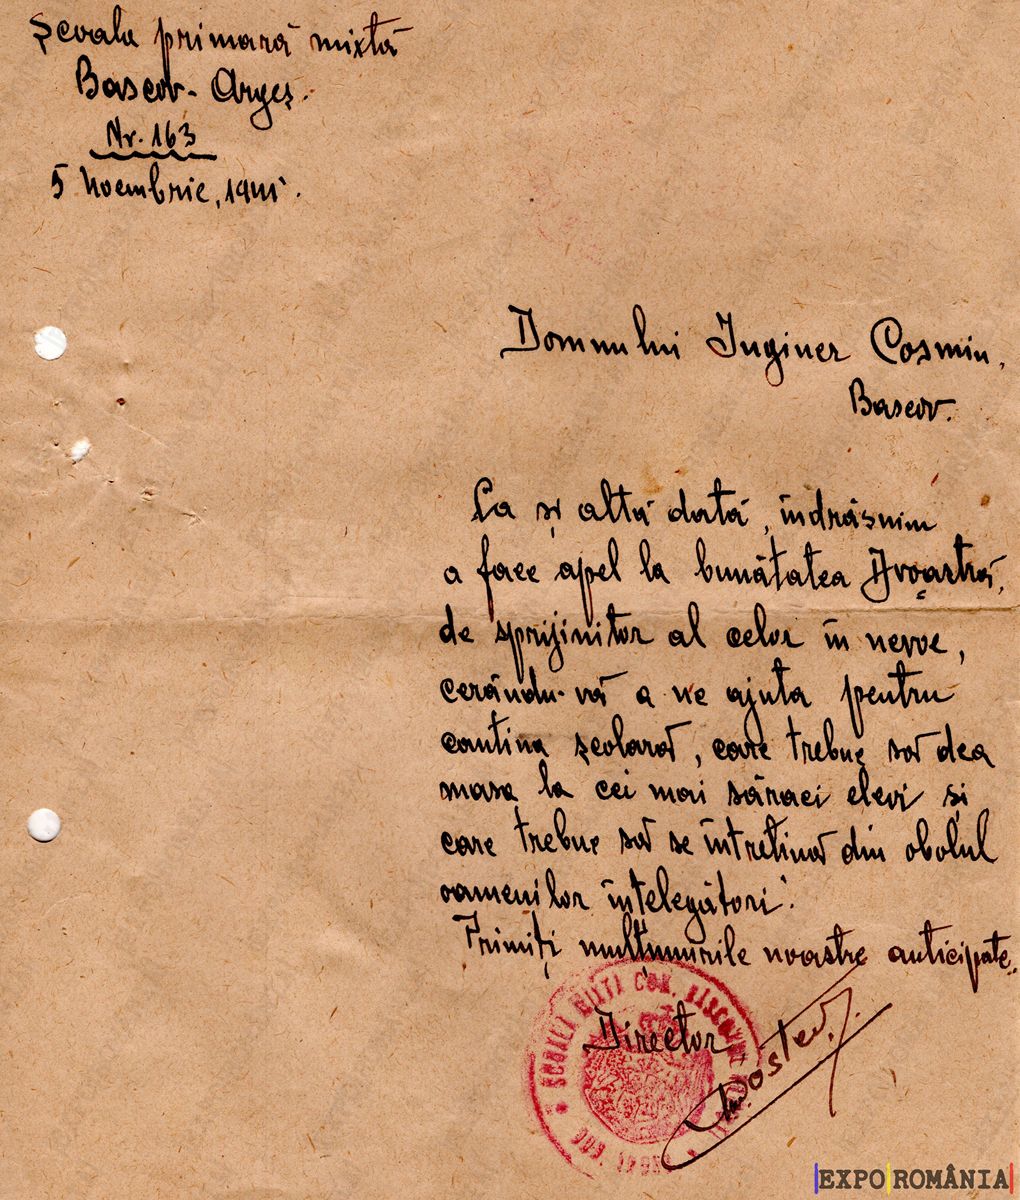 Școala primară mixtă
Bascov - Argeș.
Nr. 163
5 Noembrie, 1941.
Domnului Inginer Cosmin,
Bascov.
Ca și altă dată, îndrăsnim
a face apel la bunătatea Dvoastră,
de sprijinitor al celor în nevoe,
cerându-vă a ne ajuta pentru
cantina școlară, care trebue să dea
masa la cei mai săraci elevi și
care trebue să se întrețină din obolul
oamenilor înțelegători.
Primiți mulțumirile noastre anticipate.
Director
ȘCOALA MIXTĂ COM. BASCOV
EXPO ROMÂNIA